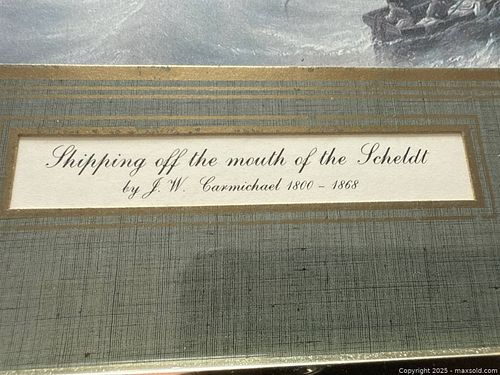 Shipping off the mouth of the Scheldt
by J. W. Carmichael 1800 - 1868
Copyright 2025 - maxsold.com